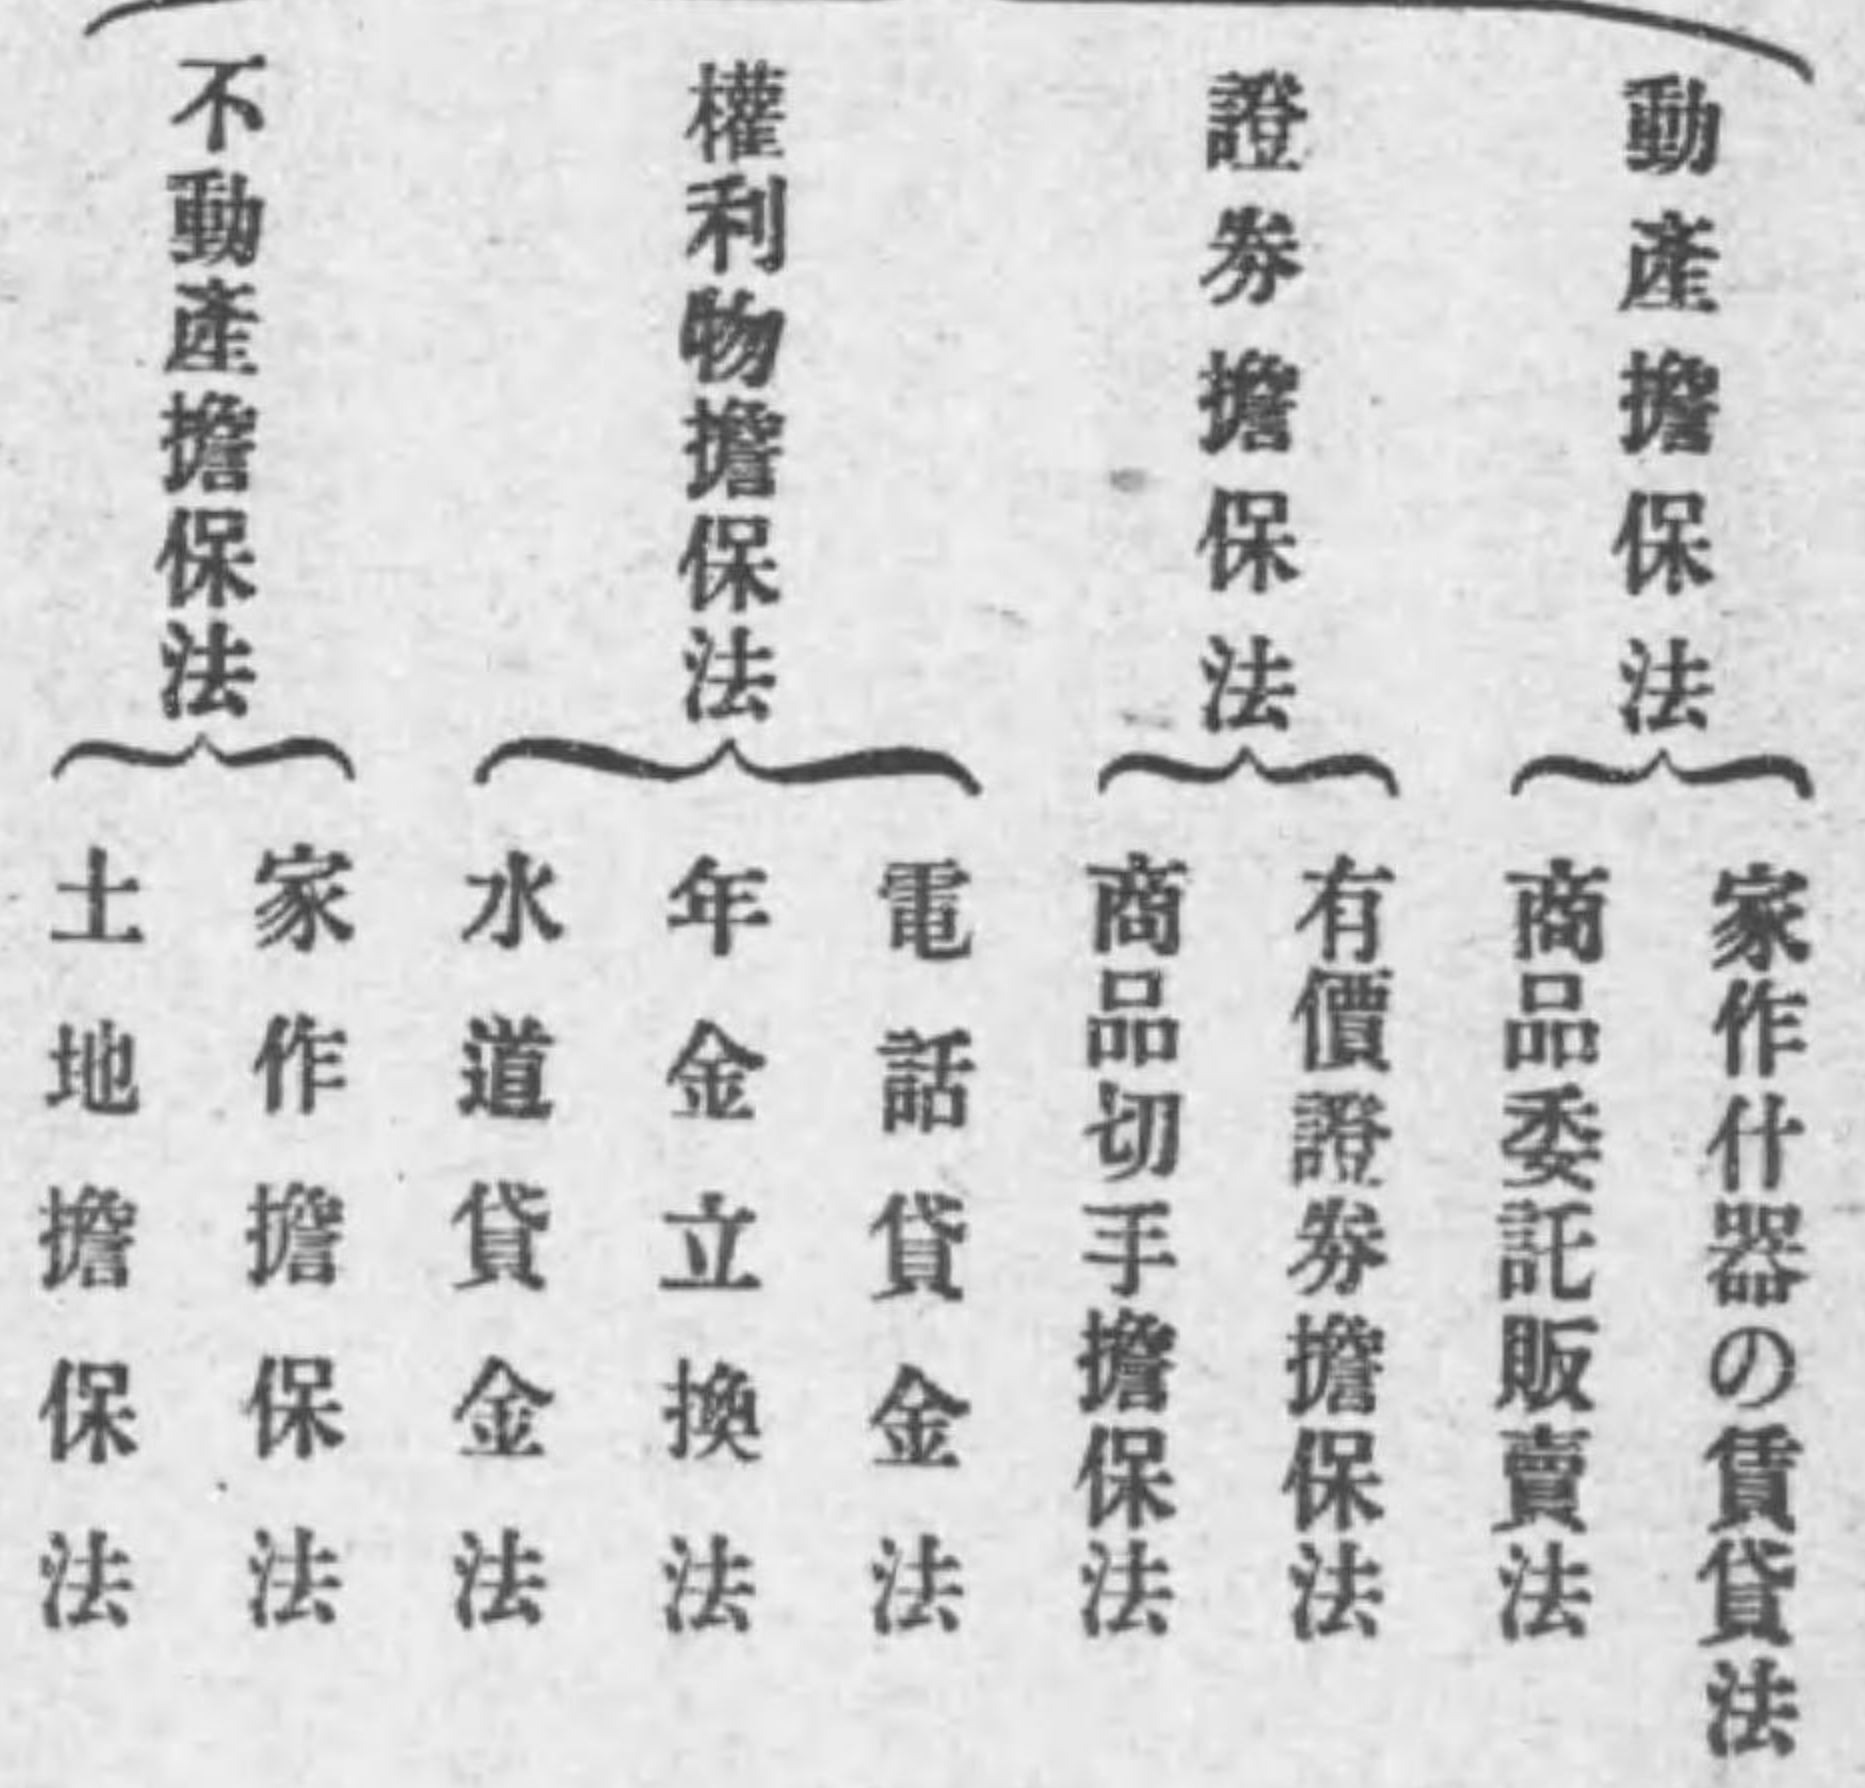 動產擔保法
家作什器の賃貸法
商品委託販賣法
證券擔保法
有價證券擔保法
商品切手擔保法
權利物擔保法
電話貸金法
年金立換法
水道貸金法
不動產擔保法
家作擔保法
土地擔保法